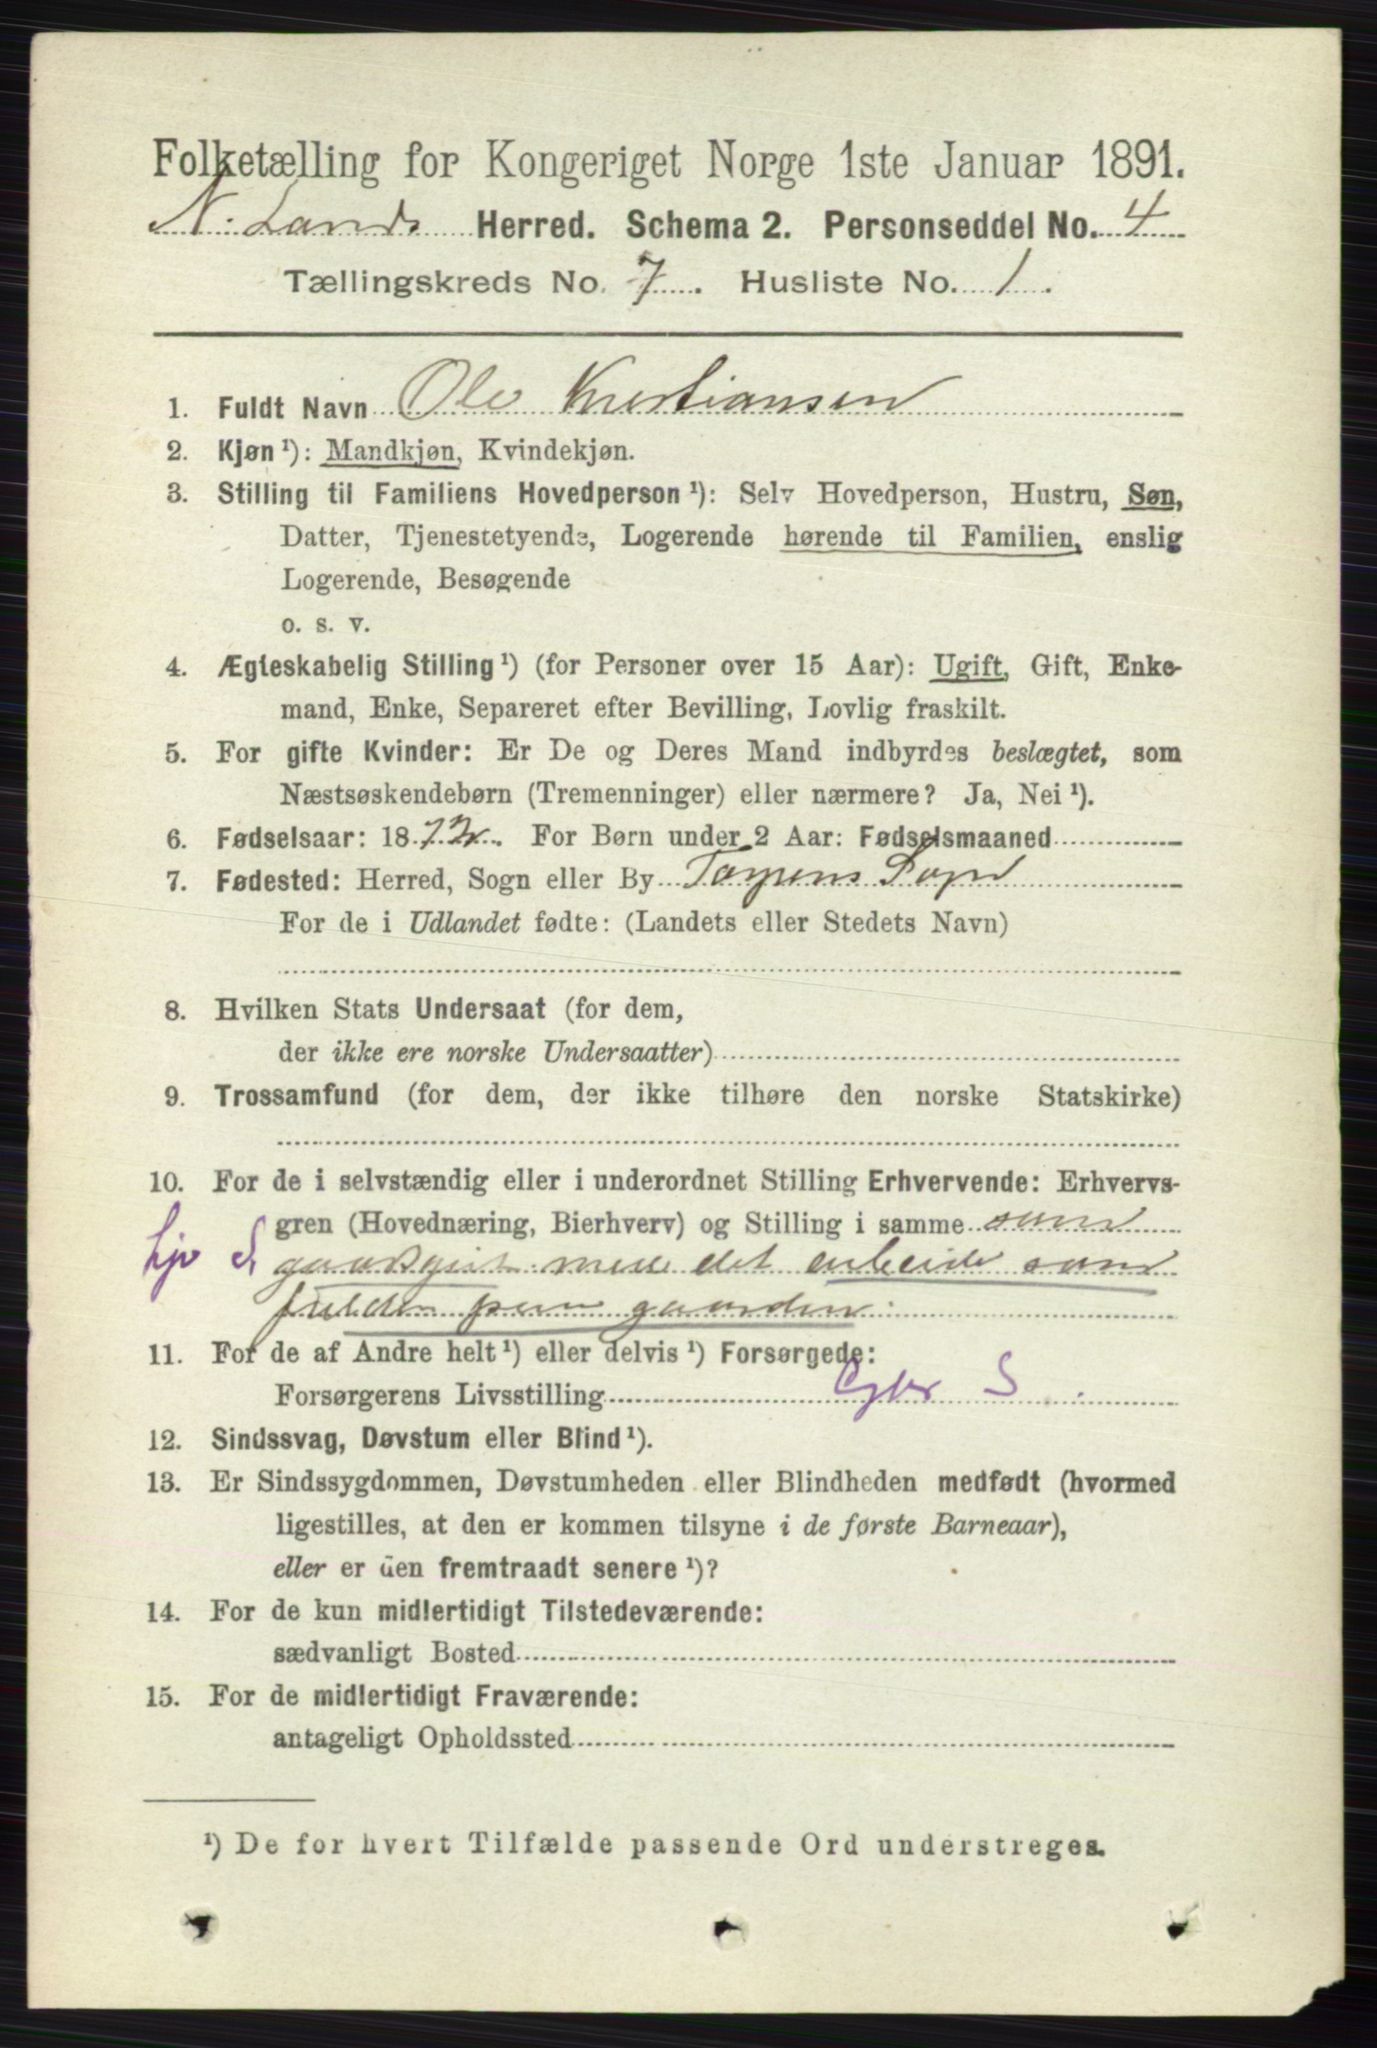 Folketælling for Kongeriget Norge 1ste Januar 1891.
N. Lands Herred. Schema 2. Personseddel No. 4
Tællingskreds No. 7. Husliste No. 1.
1. Fuldt Navn Ole Kristiansen
2. Kjøn ¹): Mandkjøn, Kvindekjøn.
3. Stilling til Familiens Hovedperson ¹): Selv Hovedperson, Hustru, Søn,
Datter, Tjenestetyende, Logerende hørende til Familien, enslig
Logerende, Besøgende
o. s. v.
4. Ægteskabelig Stilling ¹) (for Personer over 15 Aar): Ugift, Gift, Enke-
mand, Enke, Separeret efter Bevilling, Lovlig fraskilt.
5. For gifte Kvinder: Er De og Deres Mand indbyrdes beslægtet, som
Næstsøskendebørn (Tremenninger) eller nærmere? Ja, Nei ¹).
6. Fødselsaar: 18 72. For Børn under 2 Aar: Fødselsmaaned
7. Fødested: Herred, Sogn eller By Torpens Sogn
For de i Udlandet fødte: (Landets eller Stedets Navn)
8. Hvilken Stats Undersaat (for dem,
der ikke ere norske Undersaatter)
9. Trossamfund (for dem, der ikke tilhøre den norske Statskirke)
10. For de i selvstændig eller i underordnet Stilling Erhvervende: Erhvervs-
gren (Hovednæring, Bierhverv) og Stilling i samme som
hjv S, det arbeide som
gaarden
11. For de af Andre helt ¹) eller delvis ¹) Forsørgede:
Forsørgerens Livsstilling Gbr S
12. Sindssvag, Døvstum eller Blind ¹).
13. Er Sindssygdommen, Døvstumheden eller Blindheden medfødt (hvormed
ligestilles, at den er kommen tilsyne i de første Barneaar),
eller er den fremtraadt senere ¹)?
14. For de kun midlertidigt Tilstedeværende:
sædvanligt Bosted
15. For de midlertidigt Fraværende:
antageligt Opholdssted
¹) De for hvert Tilfælde passende Ord understreges.